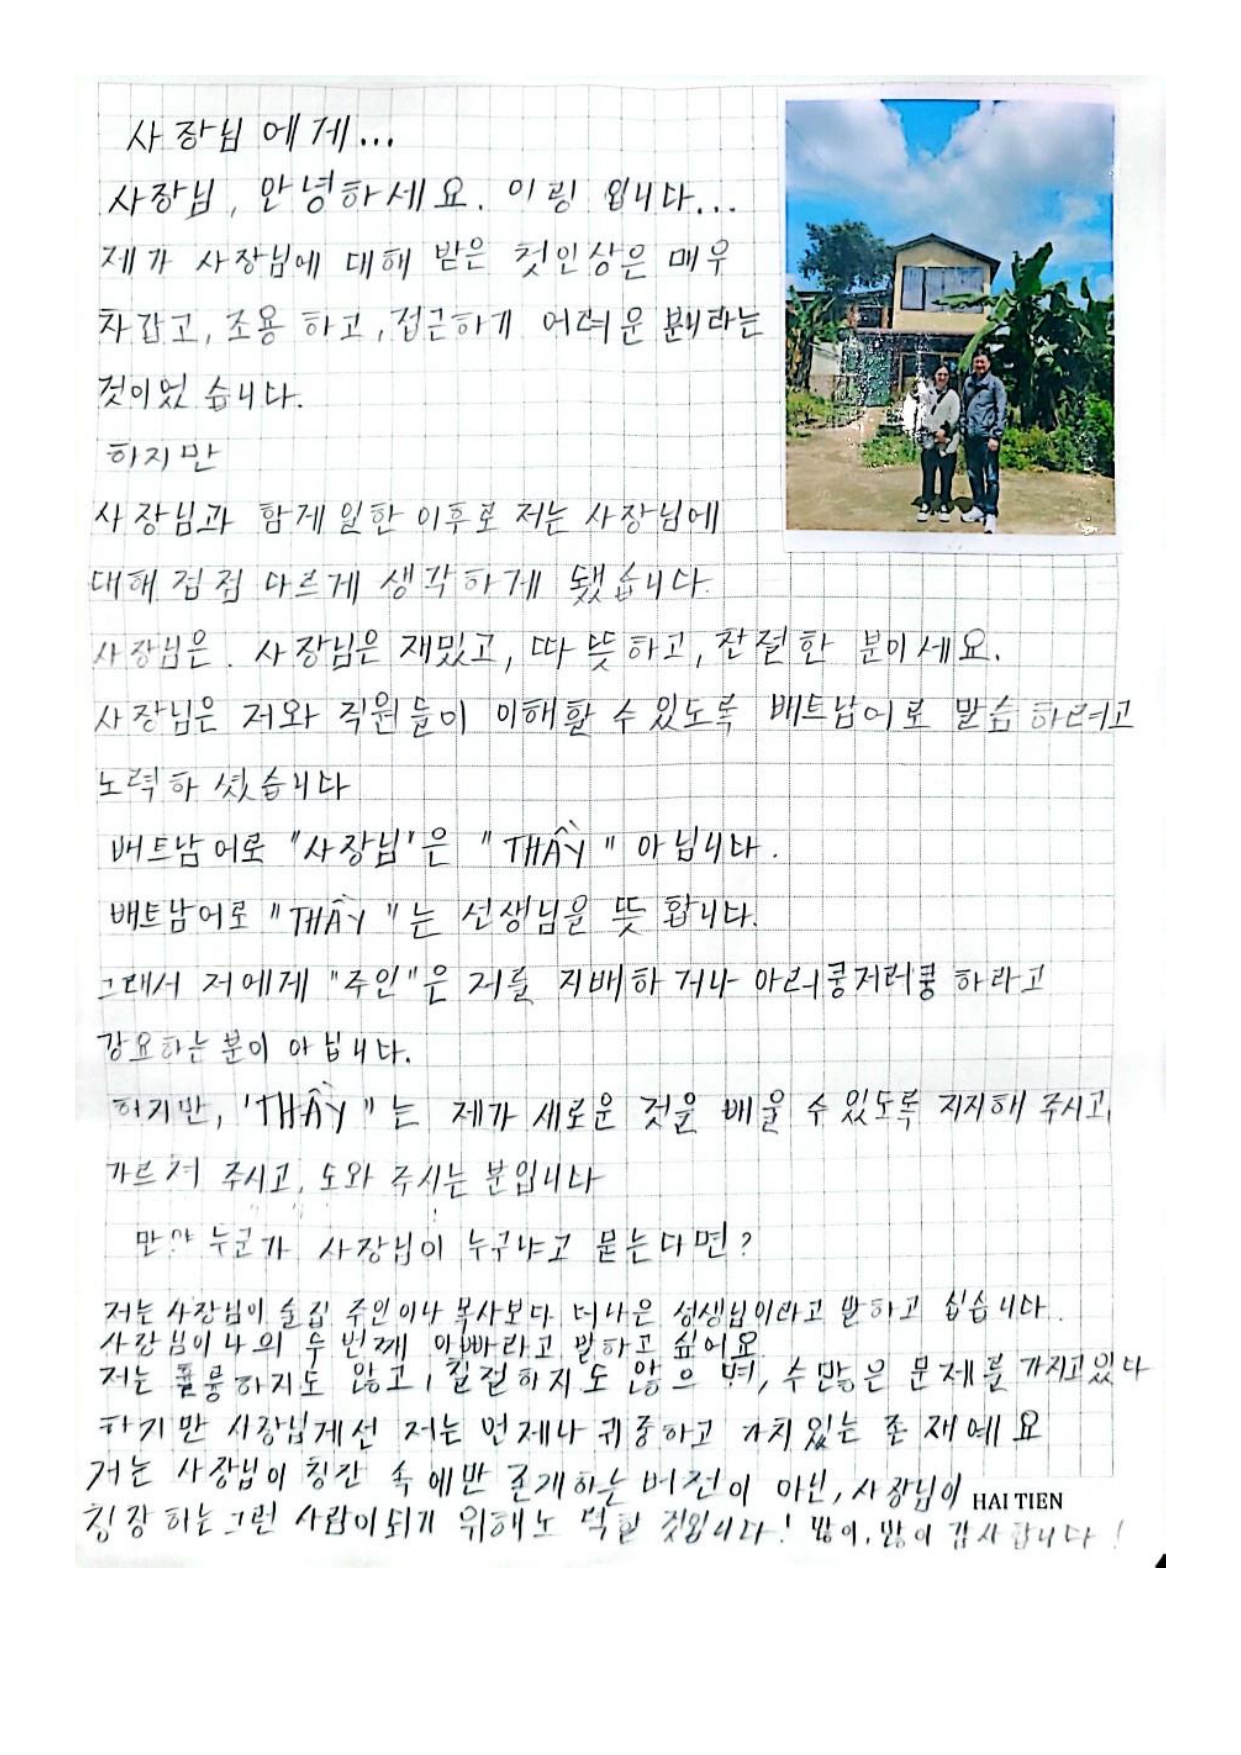 사장님에게...
사장님, 안녕하세요. 이링 입니다...
제가 사장님에 대해 받은 첫인상은 매우
차갑고, 조용 하고, 접근하게 어려운 분이라는
것이었 습니다.
하지만
사장님과 함게 일한 이후로 저는 사장님에
대해 점점 다르게 생각하게 됐습니다.
사장님은. 사장님은 재밌고, 따 뜻하고, 친절한 분이세요.
사장님은 저와 직원들이 이해할 수 있도록 베트남어로 말슴 하려고
노력하 셨습니다
베트남어로 "사장님"은 "THẦY" 아닙니다.
베트남어로 "THẦY"는 선생님을 뜻 합니다.
그래서 저에게 "주인"은 저를 지배하 거나 아러쿵저러쿵 하라고
강요하는 분이 아닙니다.
하지만, 'THẦY"는 제가 새로운 것을 배울 수 있도록 지지해 주시고,
가르쳐 주시고, 도와 주시는 분입니다
만약 누군가 사장님이 누구냐고 묻는다면?
저는 사장님이 술집 주인이나 목사보다 더나은 성생님이라고 말하고 십습니다.
사장님이 나의 두 번째 아빠라고 말하고 싶어요.
저는 훌륭하지도 않고, 친절하지도 않으 며, 수많은 문제를 가지고있다
하지만 사장님게선 저는 언제나 귀중하고 가치있는 존재예요
저는 사장님이 칭찬 속 에만 존재하는 버전이 아닌, 사장님이
칭장하는 그런 사람이되기 위해노 력할 것입니다! 많이, 많이 감사합니다!
HAI TIEN